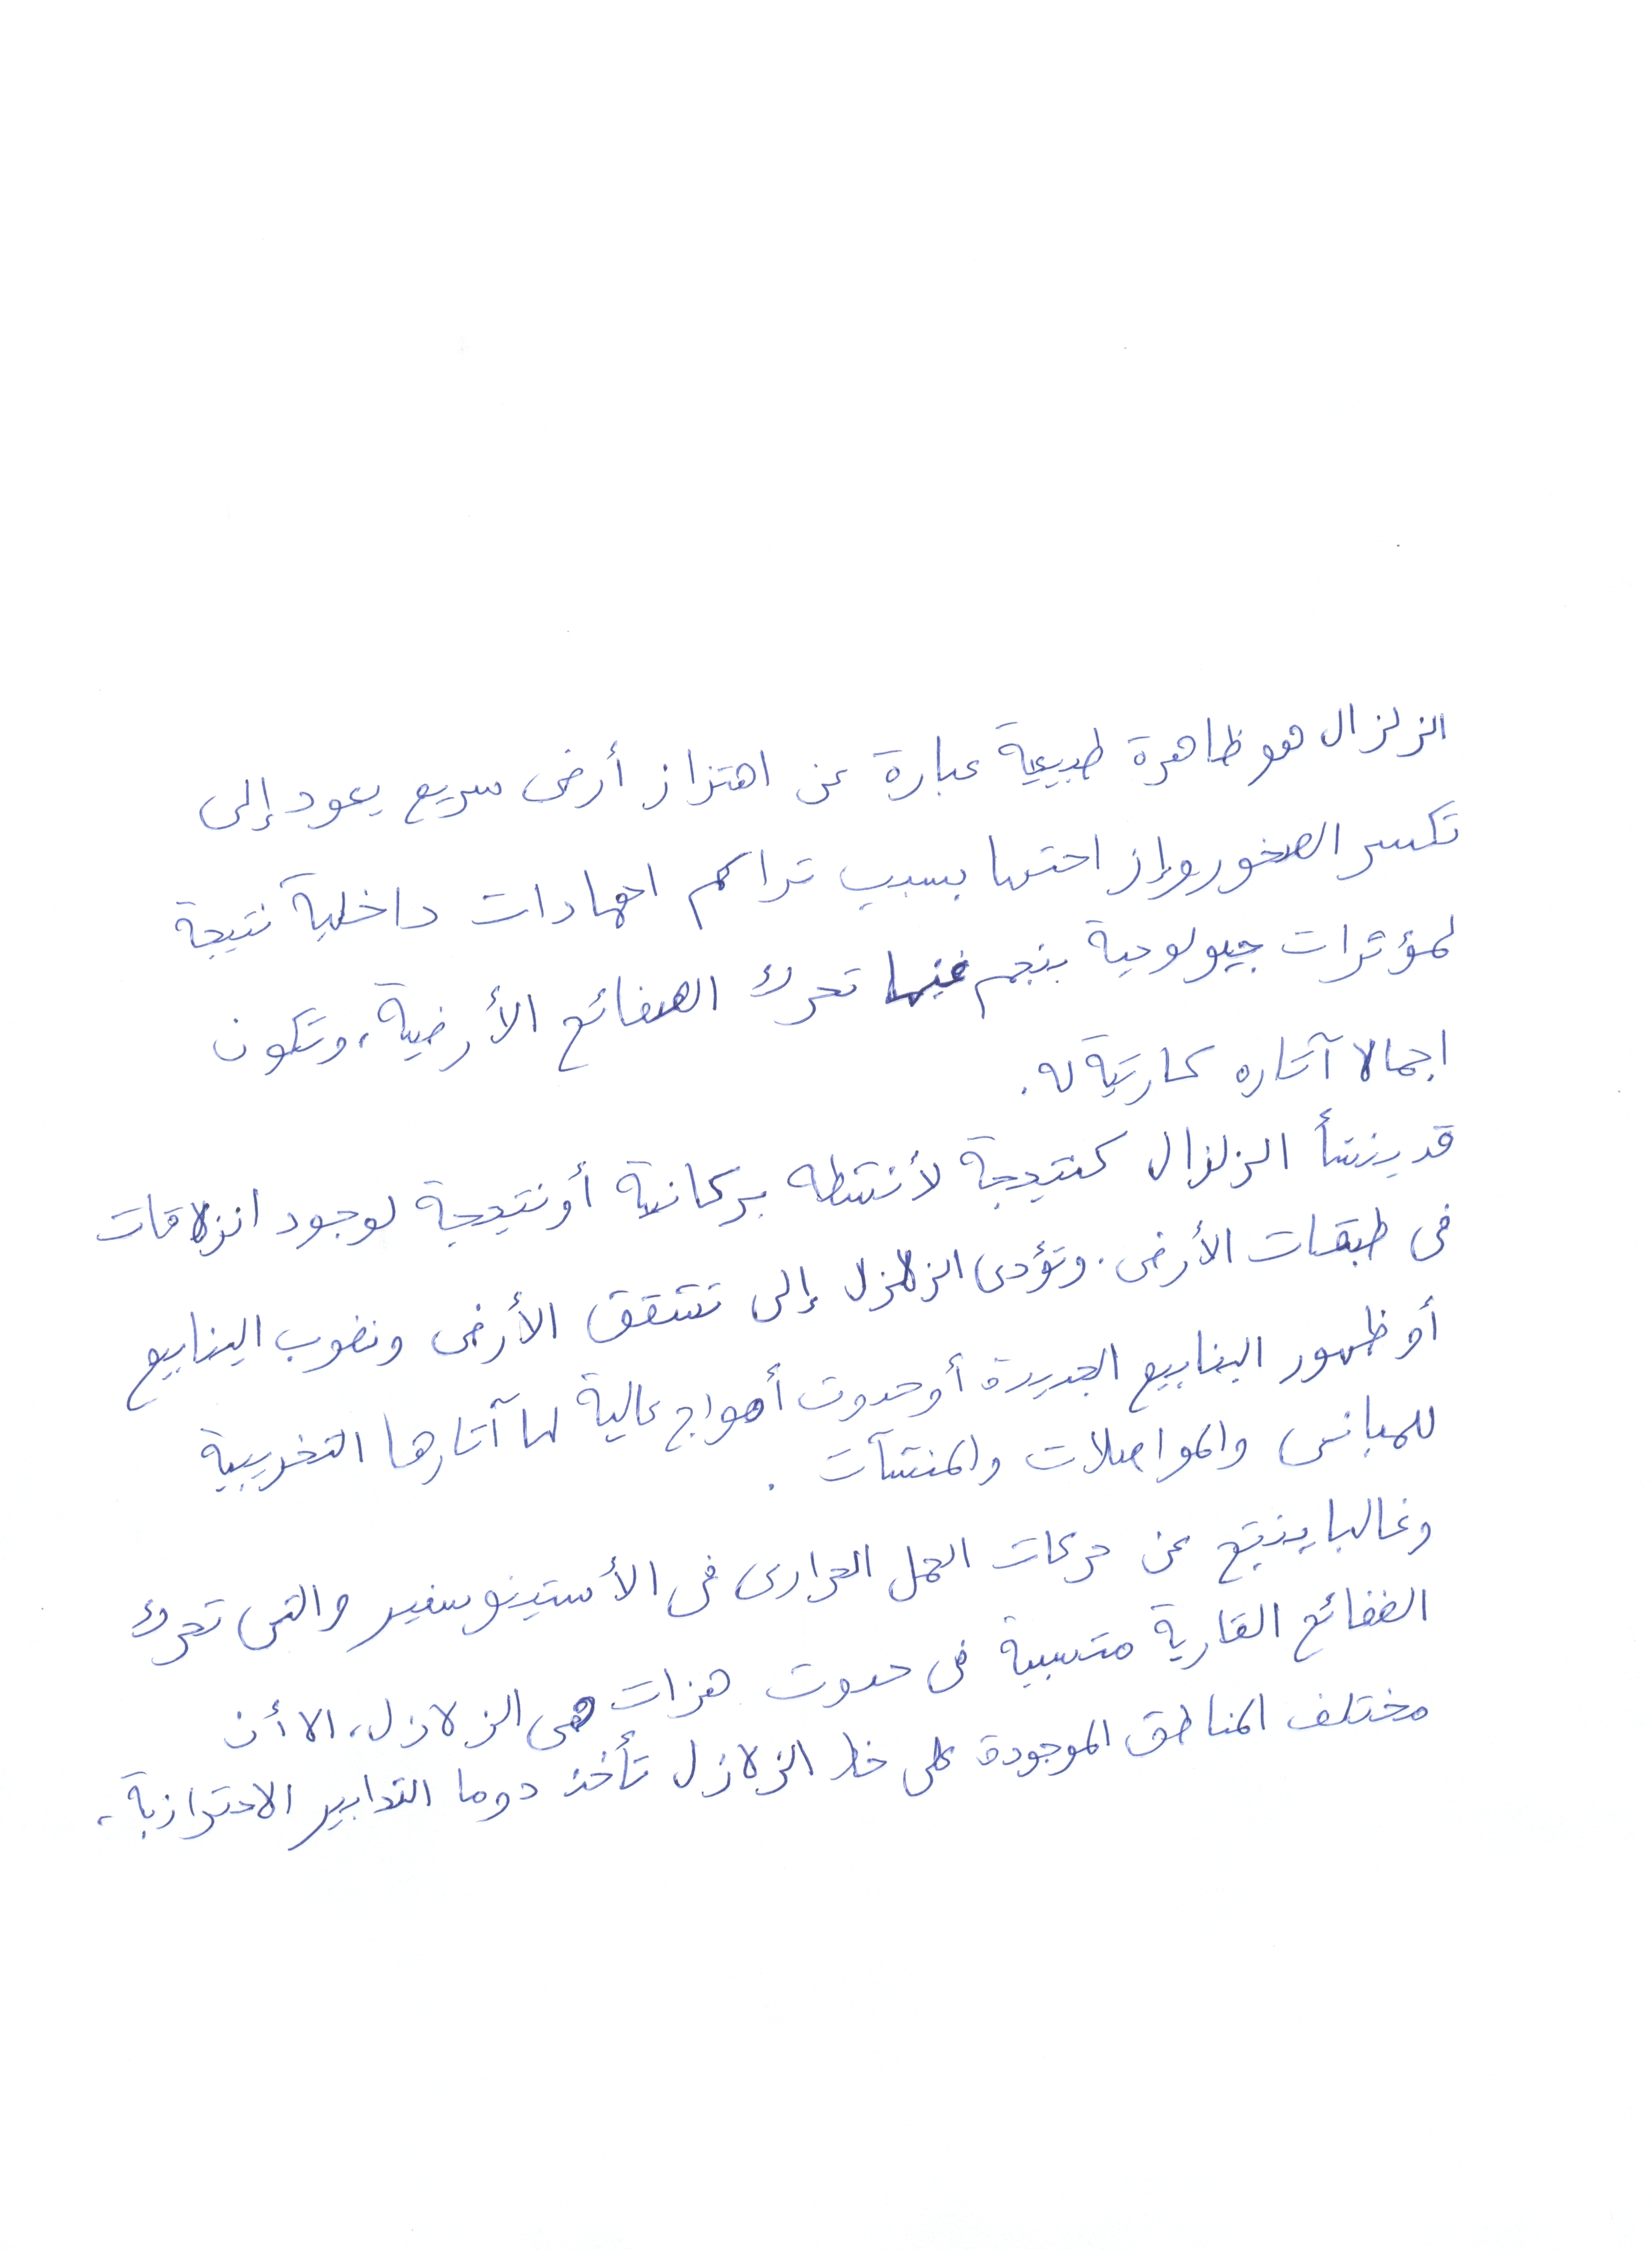 الزلزال هو ظاهرة طبيعية عبارة عن اهتزاز أرضى سريع يعود إلى
تكسر الصخور وإزاحتها بسبب تراكم اجهادات داخلية نتيجة
لمؤثرات جيولوجية ينجم عنها تحرك الصفائح الأرضية، وتكون
اجمالا آثاره كارثية له.
قد ينشأ الزلزال كنتيجة لأنشطه بركانية أو نتيجة لوجود انزلاقات
فى طبقات الأرض. وتؤدى الزلازل إلى تشقق الأرض ونضوب الينابيع
أو ظهور الينابيع الجديدة أو حدوث أمواج عالية لها آثارها التخريبية
للمبانى والمواصلات والمنشآت .
وغالبا ينتج عن حركات الحمل الحرارى فى الأستينوسفير والتى تحرك
الصفائح القارية متسببة فى حدوث هزات هى الزلازل، الا أن
مختلف المناطق الموجودة على خط الزلازل تأخذ دوما التدابير الاحترازية،